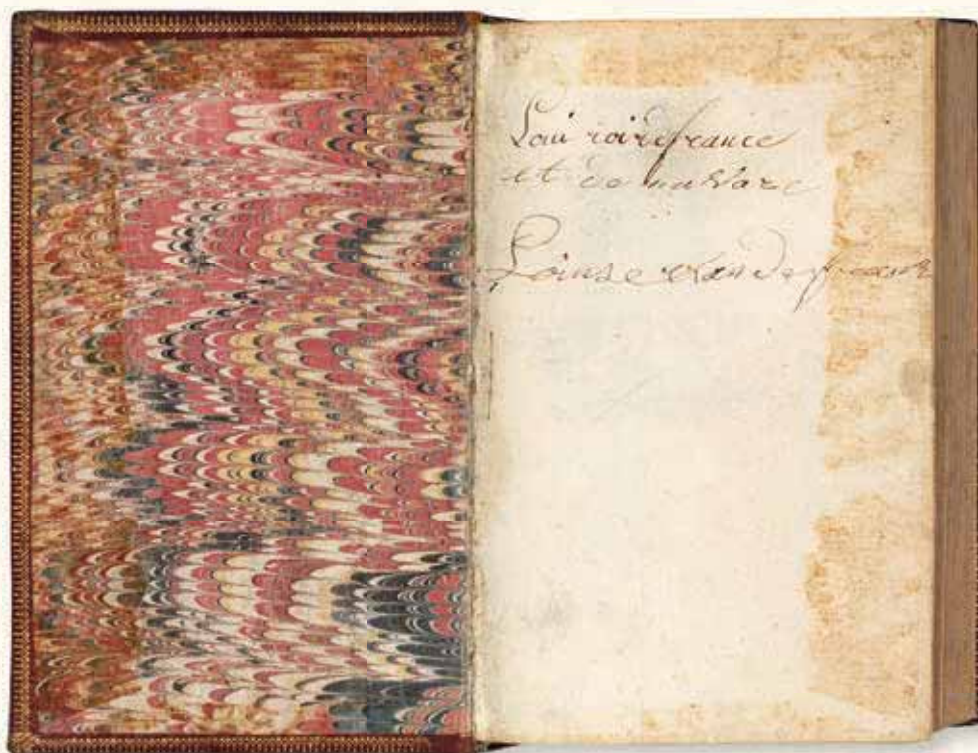 Loui roi de france
et de navare
Louise de france